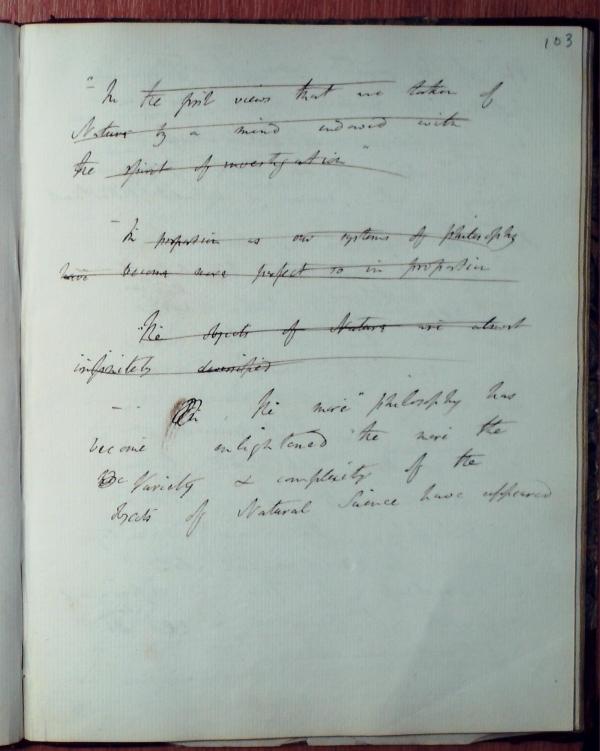 103
"In the first views that are taken of
Nature by a mind endowed with
the spirit of investigation"
- In proportion as our systems of philosophy
have become more perfect so in proportion
"The objects of Nature are almost
infinitely diversified
- The more" philosophy has
become enlightened the more the
Variety & complexity of the
objects of Natural Science have appeared